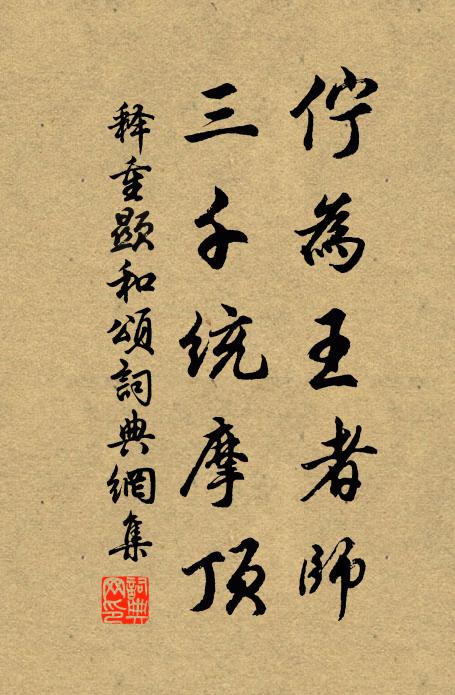 佇為王者師
三千統摩頂
释重顯和頌詞典網集
詞典网印